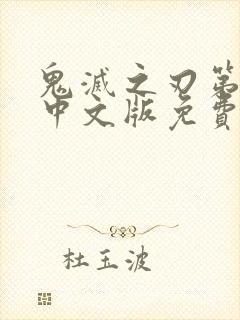 鬼滅之刃第
中文版免費
杜玉波